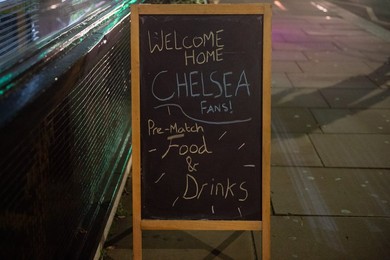 WELCOME
HOME
CHELSEA
FANS!
Pre-Match
Food
&
Drinks